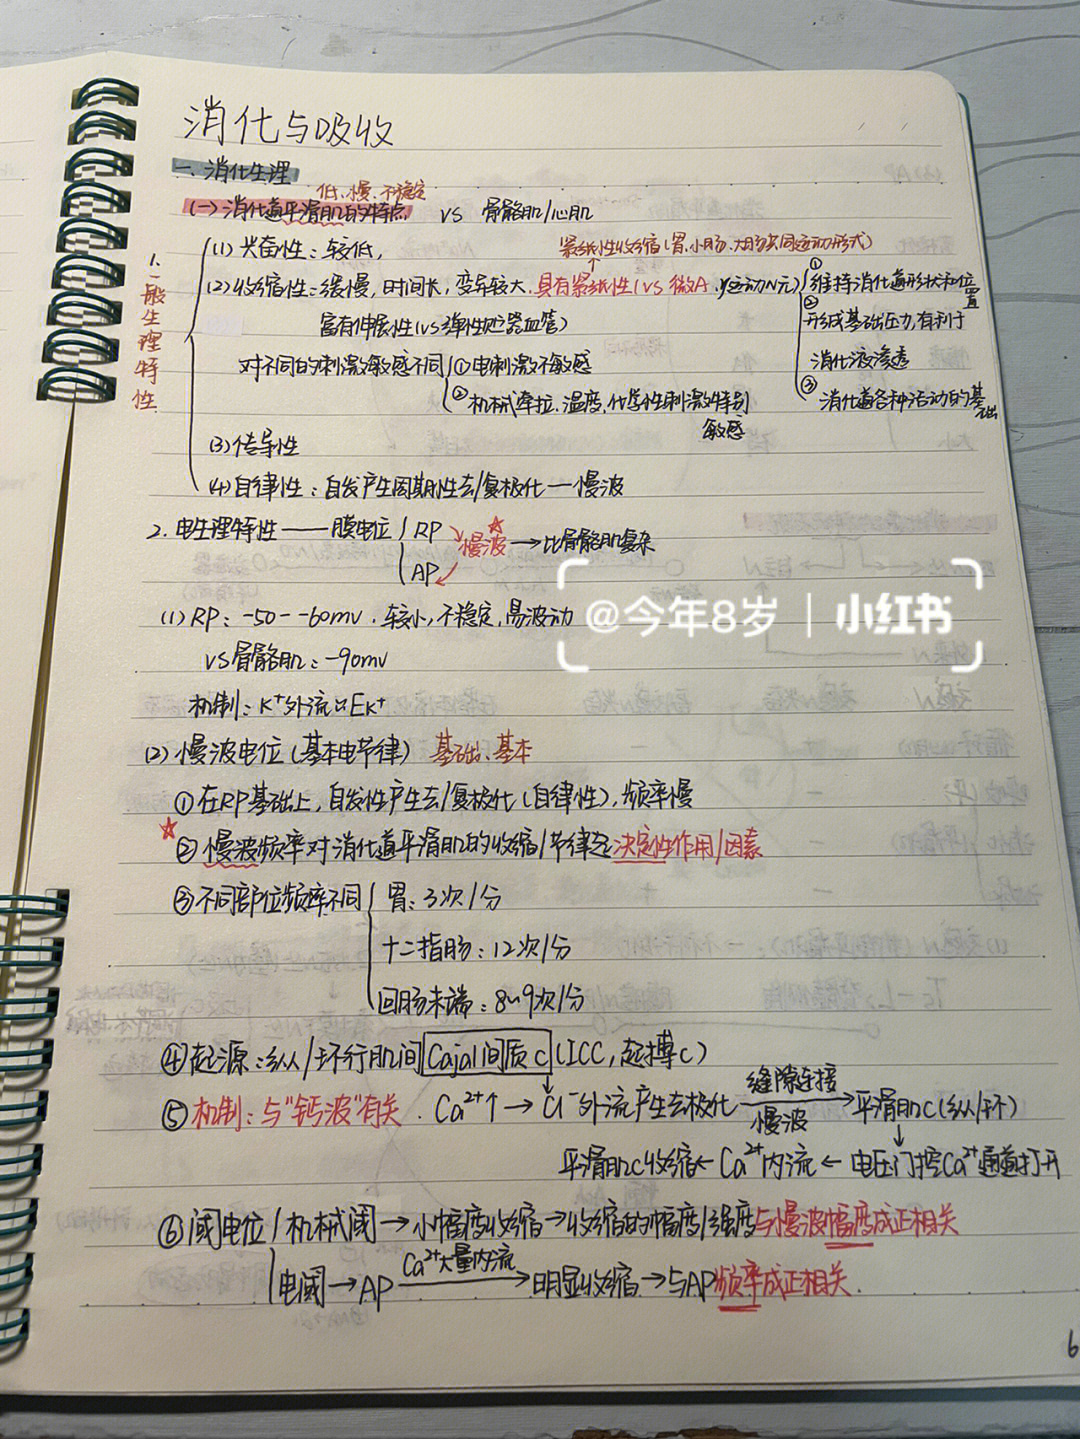 消化与吸收
一. 消化生理
低、慢、不稳定
(一) 消化道平滑肌的特点 VS 骨骼肌/心肌
1. 一般生理特性
(1) 兴奋性：较低,
紧张性收缩(胃、小肠、大肠共同运动形式)
(2) 收缩性：缓慢, 时间长, 变异较大. 具有紧张性(VS 微A. 运动N元)
①维持消化道形状和位置
②形成基础压力, 有利于
消化液渗透
③消化道各种活动的基础
富有伸展性(VS弹性贮器血管)
对不同的刺激敏感不同 ①电刺激不敏感
②机械牵拉、温度、化学性刺激特别
敏感
(3) 传导性
(4) 自律性：自发产生周期性去/复极化—慢波
2. 电生理特性——膜电位 RP 慢波→比骨骼肌复杂
AP
@今年8岁 | 小红书
(1) RP：-50--60mv. 较小, 不稳定, 易波动
VS骨骼肌：-90mv
机制：K⁺外流∝EK⁺
(2) 慢波电位(基本电节律) 基础、基本
①在RP基础上, 自发性产生去/复极化(自律性), 频率慢
②慢波频率对消化道平滑肌的收缩/节律起决定性作用/因素
③不同部位频率不同 胃：3次/分
十二指肠：12次/分
回肠末端：8~9次/分
④起源：纵/环行肌间Cajal间质C(ICC, 起搏C)
⑤机制：与"钙波"有关. Ca²⁺↑→Cl⁻外流产生去极化 缝隙连接 慢波 →平滑肌C(纵/环)
平滑肌C收缩←Ca²⁺内流←电压门控Ca²⁺通道打开
⑥阈电位 机械阈→小幅度收缩→收缩的幅度/强度与慢波幅度成正相关
电阈→AP Ca²⁺大量内流→明显收缩→与AP频率成正相关.
6